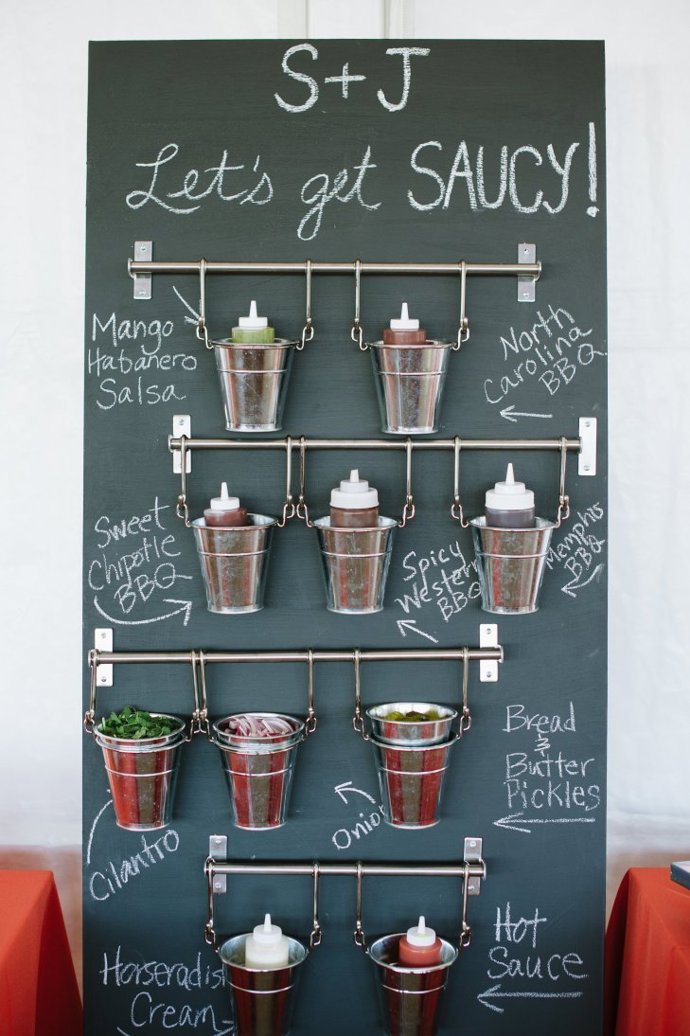 S+J
Let's get SAUCY!
Mango
Habanero
Salsa
North
Carolina
BBQ
Sweet
Chipotle
BBQ
Spicy
Western
BBQ
Memphis
BBQ
Cilantro
Onion
Bread
&
Butter
Pickles
Horseradish
Cream
Hot
Sauce